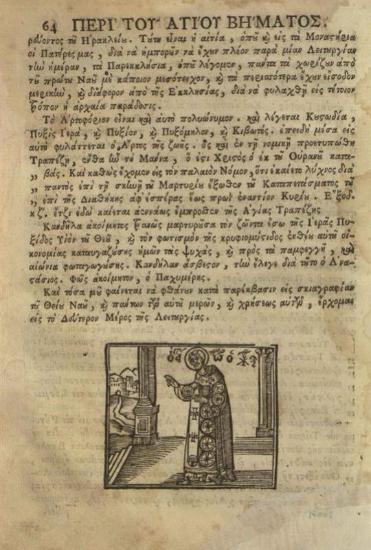 64 ΠΕΡΙ ΤΟΥ ΑΓΙΟΥ ΒΗΜΑΤΟΣ.
ρεύοντος τῦ Ἡρακλείυ. Τύτη εἶναι ἡ αἰτία, ὁπῦ κ̀ εἰς τὰ Μοναςήρια
οἱ Πατέρες μας, διὰ νὰ ἠμπορῦν νὰ ἔχυν πλέον παρὰ μίαν Λειτυργίαν
τὴν ἡμέραν, τὰ Παρεκκλήσια, ὁπῦ λέγομεν, πάντα τὰ χωρίζυν ἀπὸ
τῦ πρώτυ Ναῦ μὲ κᾄποιον μεσότοιχον, κ̀ τὰ περισσότερα ἔχυν εἴσοδον
μερικὴν, κ̀ διάφορον ἀπὸ τῆς Ἐκκλησίας, διὰ νὰ φυλαχθῇ εἰς τοιῦτον
τρόπον ἡ ἀρχαία παράδοσις.
Τὸ Ἀρτοφόριον εἶναι καὶ αὐτὸ πολυώνυμον. καὶ λέγεται Κιβωδία,
Πυξὶς Ἱερὰ, κ̀ Πυξίον, κ̀ Πυξόμηλον, κ̀ Κιβωτός. ἐπειδὴ μέσα εἰς
αὐτὸ φυλάττεται ὁ Ἄρτος τῆς ζωῆς. ὃς καὶ ἐν τῇ νομικῇ προετυπώθη
Τραπέζῃ, ἔνθα ἦν τὸ Μάννα, ὅ ἐςι Χριςὸς ὁ ἐκ τῦ Οὐρανῦ κατα-
βάς. Καὶ καθὼς ἔχομεν εἰς τὸν παλαιὸν Νόμον, ὅτι ἐκαίετο λύχνος διὰ
παντὸς ἐπὶ τῇ σκηνῇ τῦ Μαρτυρίυ ἔξωθεν τῦ Καταπετάσματος τῦ
ἐπὶ τῆς Διαθήκης ἀφ᾽ ἑσπέρας ἕως πρωῒ ἐναντίον Κυρίυ. Ἐξοδ.
κζ. ἔτζι ἐδῶ καίεται ἀενάως ἔμπροσθεν τῆς Ἁγίας Τραπέζης
Κανδύλα ἀκοίμητος ἱκανῶς μαρτυρῦσα τὸν ζῶντα ἔσω τῆς Ἱερᾶς Πυ-
ξίδος Υἱὸν τῦ Θεῦ, κ̀ τὸν φωτισμὸν τῆς κρυφιομύςυ ἐνθέυ αὐτῦ οἰ-
κονομίας καταυγάζυσης ἡμῶν τὰς ψυχὰς, κ̀ πρὸς τὰ παμφεγγῆ, καὶ
αἰώνια φωταγωγύσης. Κανδύλαν ἄσβεςον, τὴν ἔλεγε διὰ τῦτο ὁ Ἀνα-
ςάσιος. Φῶς ἀκοίμητον, ὁ Παχυμέρης.
Καὶ τόσα μῦ φαίνεται νὰ φθάνυν κατὰ παρέκβασιν εἰς σκιαγραφίαν
τῦ Θείυ Ναῦ, κ̀ πάντων τῶν αὐτῦ μερῶν, κ̀ χρήσεως αὐτῶν, ἔρχομαι
εἰς τὸ Δεύτερον Μέρος τῆς Λειτυργίας.